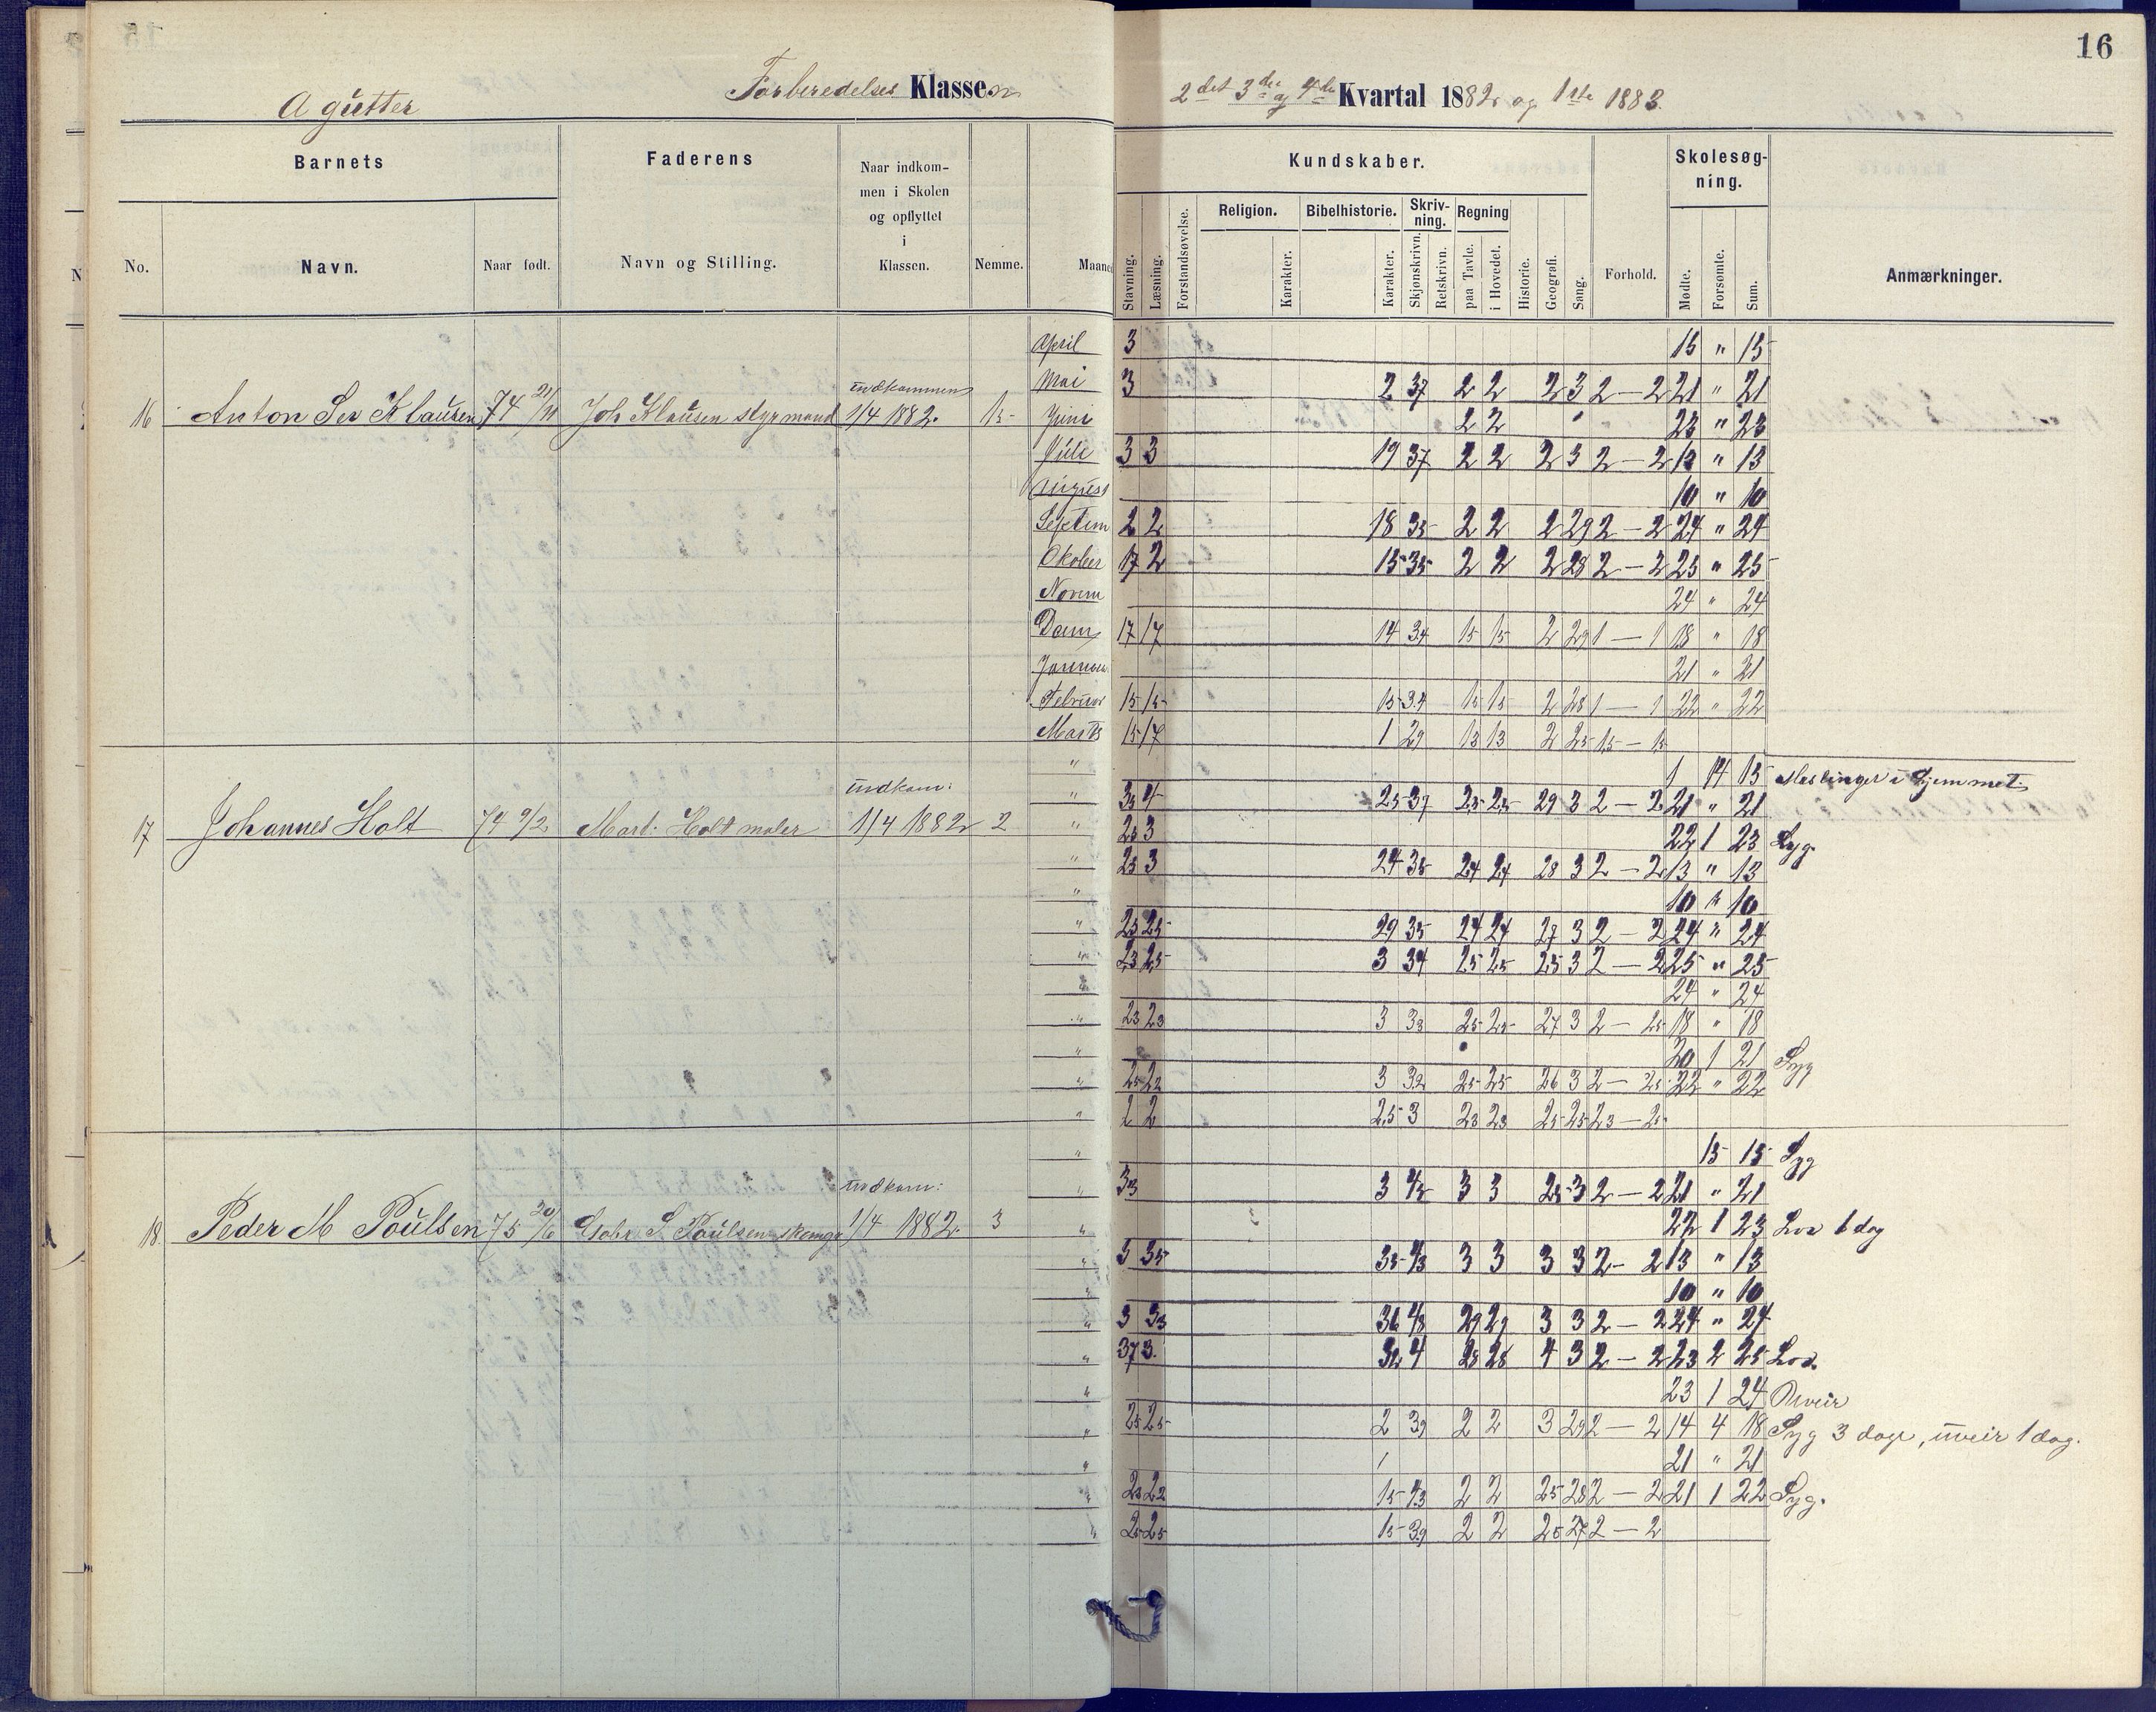 16
A gutter Forberedelses Klassen 2det 3die og 4de Kvartal 1882 og 1ste 1883
Barnets Faderens Naar indkommen i Skolen og opflyttet i Klassen. Nemme. Kundskaber. Skolesøgning. Anmærkninger.
No. Navn. Naar født. Navn og Stilling. Stavning. Læsning. Forstandsøvelse. Religion. Karakter. Bibelhistorie. Karakter. Skrivning. Skjønskrivn. Retskrivn. Regning paa Tavle. i Hovedet. Historie. Geografi. Sang. Forhold. Mødte. Forsømte. Sum.
April 3 15 " 15
indkommen
Mai 3 2 37 2 2 2 3 2 — 2 21 " 21
16 Anton Klausen 74 Joh Klausen styrmand 1/4 1882. 15 Juni 2 2 23 " 23
Juli 3 3 19 37 2 2 2 3 2 — 2 13 " 13
August 10 " 10
Septem 2 2 18 35 2 2 2 29 2 — 2 24 " 24
Oktober 17 2 15 35 2 2 2 28 2 — 2 25 " 25
Novem 24 " 24
17 17 14 34 15 15 2 29 1 — 1 18 " 18
21 " 21
Februar 15 15 15 34 15 15 2 28 1 — 1 22 " 22
Marts 15 17 1 29 13 13 2 25 15 — 15
" 1 14 15 Meslinger i Hjemmet
indkom:
" 25 37 25 25 29 3 2 — 2 21 " 21
17 Johannes Holt 74 9/2 Mart: Holt maler 1/4 1882 2 " 23 3 22 1 23 Syg.
" 23 3 24 35 24 24 28 3 2 — 2 13 " 13
" 10 " 10
" 25 25 29 35 24 24 27 3 2 — 2 24 " 24
" 23 25 3 34 25 25 25 3 2 — 2 25 " 25
24 " 24
" 23 23 3 33 25 25 27 3 2 — 25 18 " 18
" 20 1 21 Syg
" 22 22 3 32 25 25 26 3 2 — 25 22 " 22
" 2 2 25 3 23 23 25 25 23 — 25
" 15 15 Syg
indkom:
" 33 3 3 3 25 3 2 — 2 21 " 21
18 Peder M Poulsen 75 20/6 S Poulsen 1/4 1882. 3 " 22 1 23 Lov 1 dag
" 3 35 35 43 3 3 3 3 2 — 2 13 " 13
" 10 " 10
" 3 33 36 43 29 29 3 3 2 — 2 24 " 24
" 37 3 32 4 28 28 4 3 2 — 2 23 2 25 Lov.
" 23 1 24 Uveir
" 25 25 2 39 2 2 3 29 2 — 2 14 4 18 Syg 3 dage, uveir 1 dag.
" 21 " 21
" 22 22 15 43 2 2 25 28 2 — 2 21 1 22 Syg.
" 25 25 15 39 2 2 25 27 2 — 2